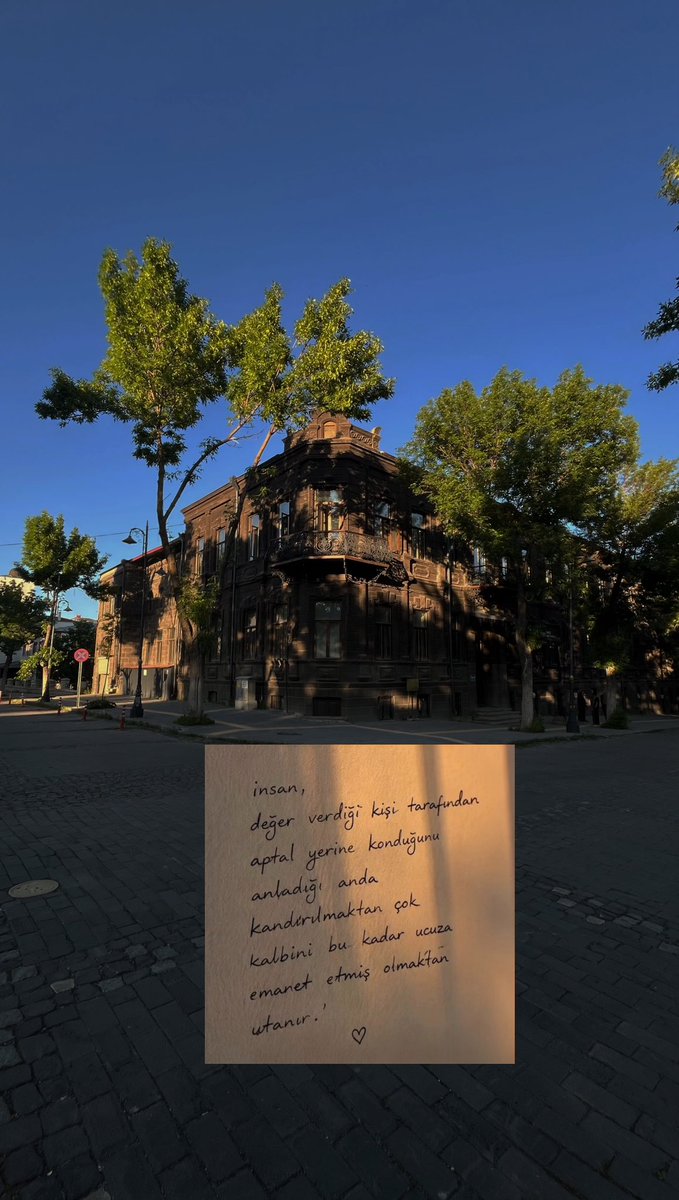 insan,
değer verdiği kişi tarafından
aptal yerine konduğunu
anladığı anda
kandırılmaktan çok
kalbini bu kadar ucuza
emanet etmiş olmaktan
utanır.'